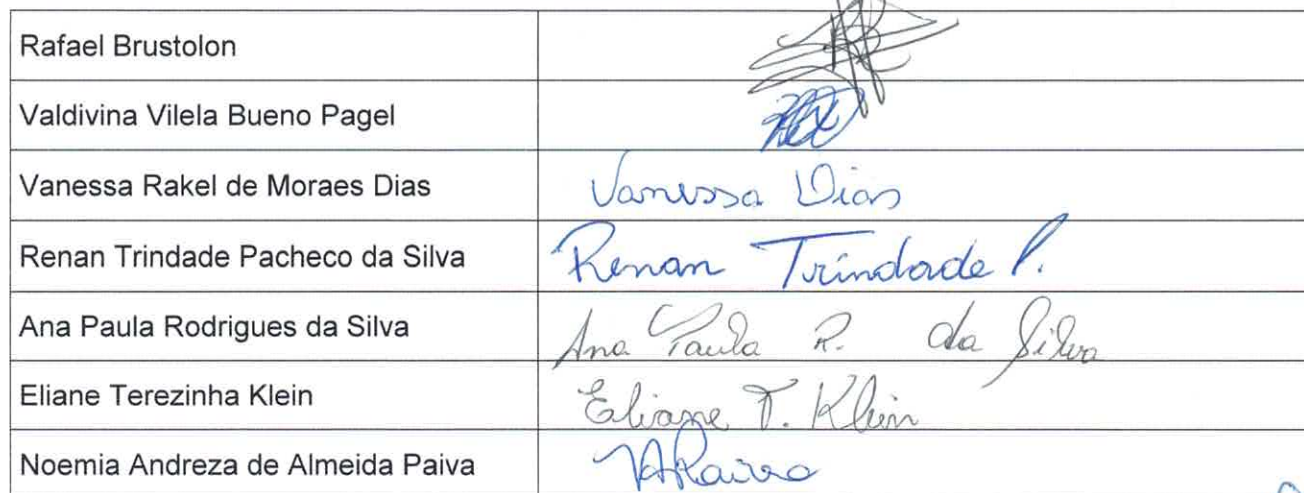 Rafael Brustolon
Valdivina Vilela Bueno Pagel
Vanessa Rakel de Moraes Dias Vanessa Dias
Renan Trindade Pacheco da Silva Renan Trindade P.
Ana Paula Rodrigues da Silva Ana Paula R. da Silva
Eliane Terezinha Klein Eliane T. Klein
Noemia Andreza de Almeida Paiva NAPaiva